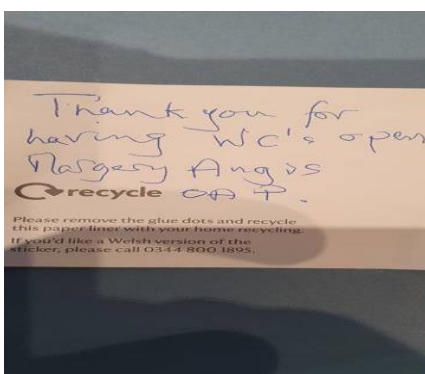 Thank you for
having WC's open
Margery Angus
recycle OAP.
Please remove the glue dots and recycle
this paper liner with your home recycling.
If you'd like a Welsh version of the
sticker, please call 0344 800 1895.